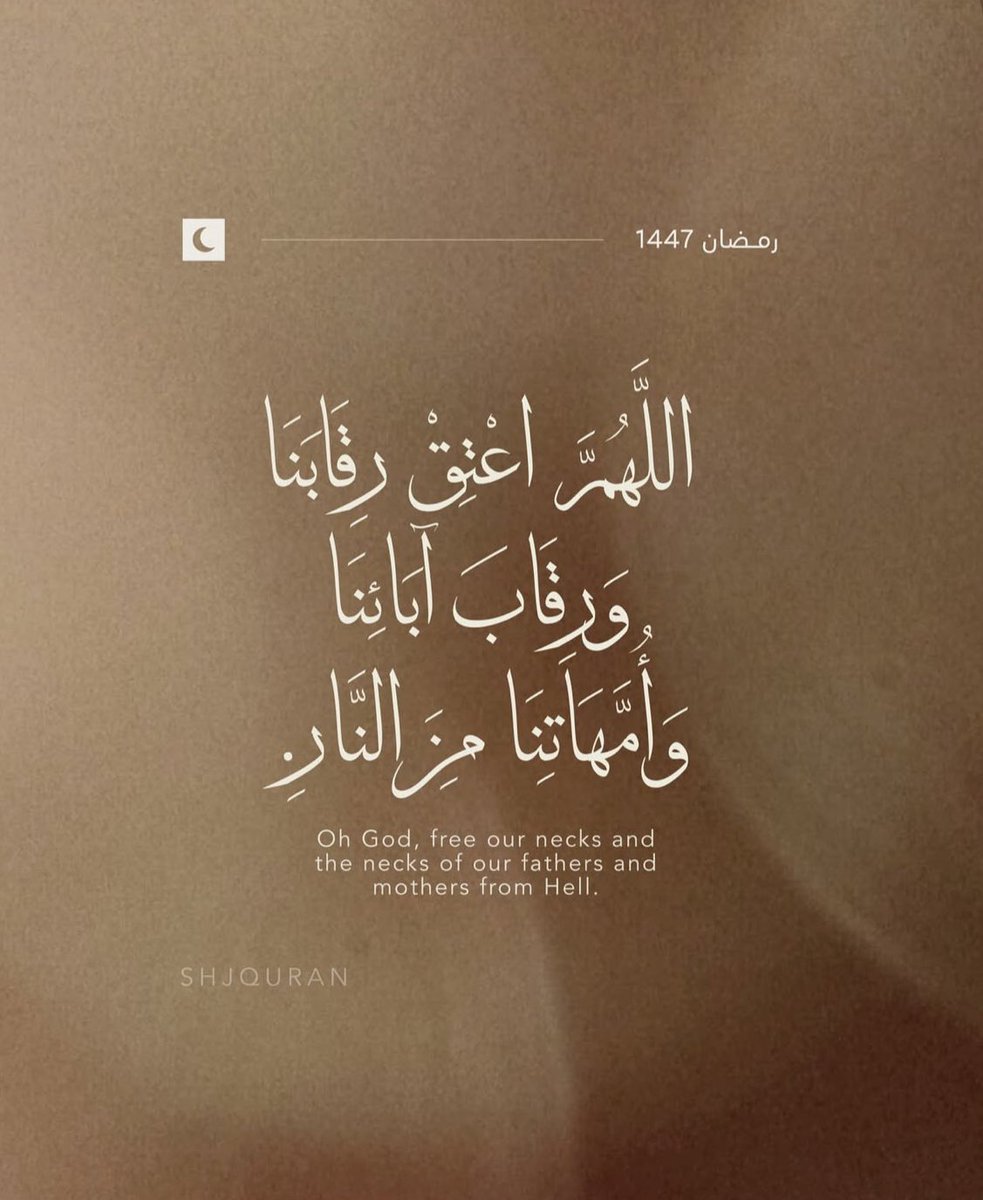 رمضان 1447
اللَّهُمَّ اعْتِقْ رِقَابَنَا
وَرِقَابَ آبَائِنَا
وَأُمَّهَاتِنَا مِنَ النَّارِ.
Oh God, free our necks and
the necks of our fathers and
mothers from Hell.
SHJQURAN